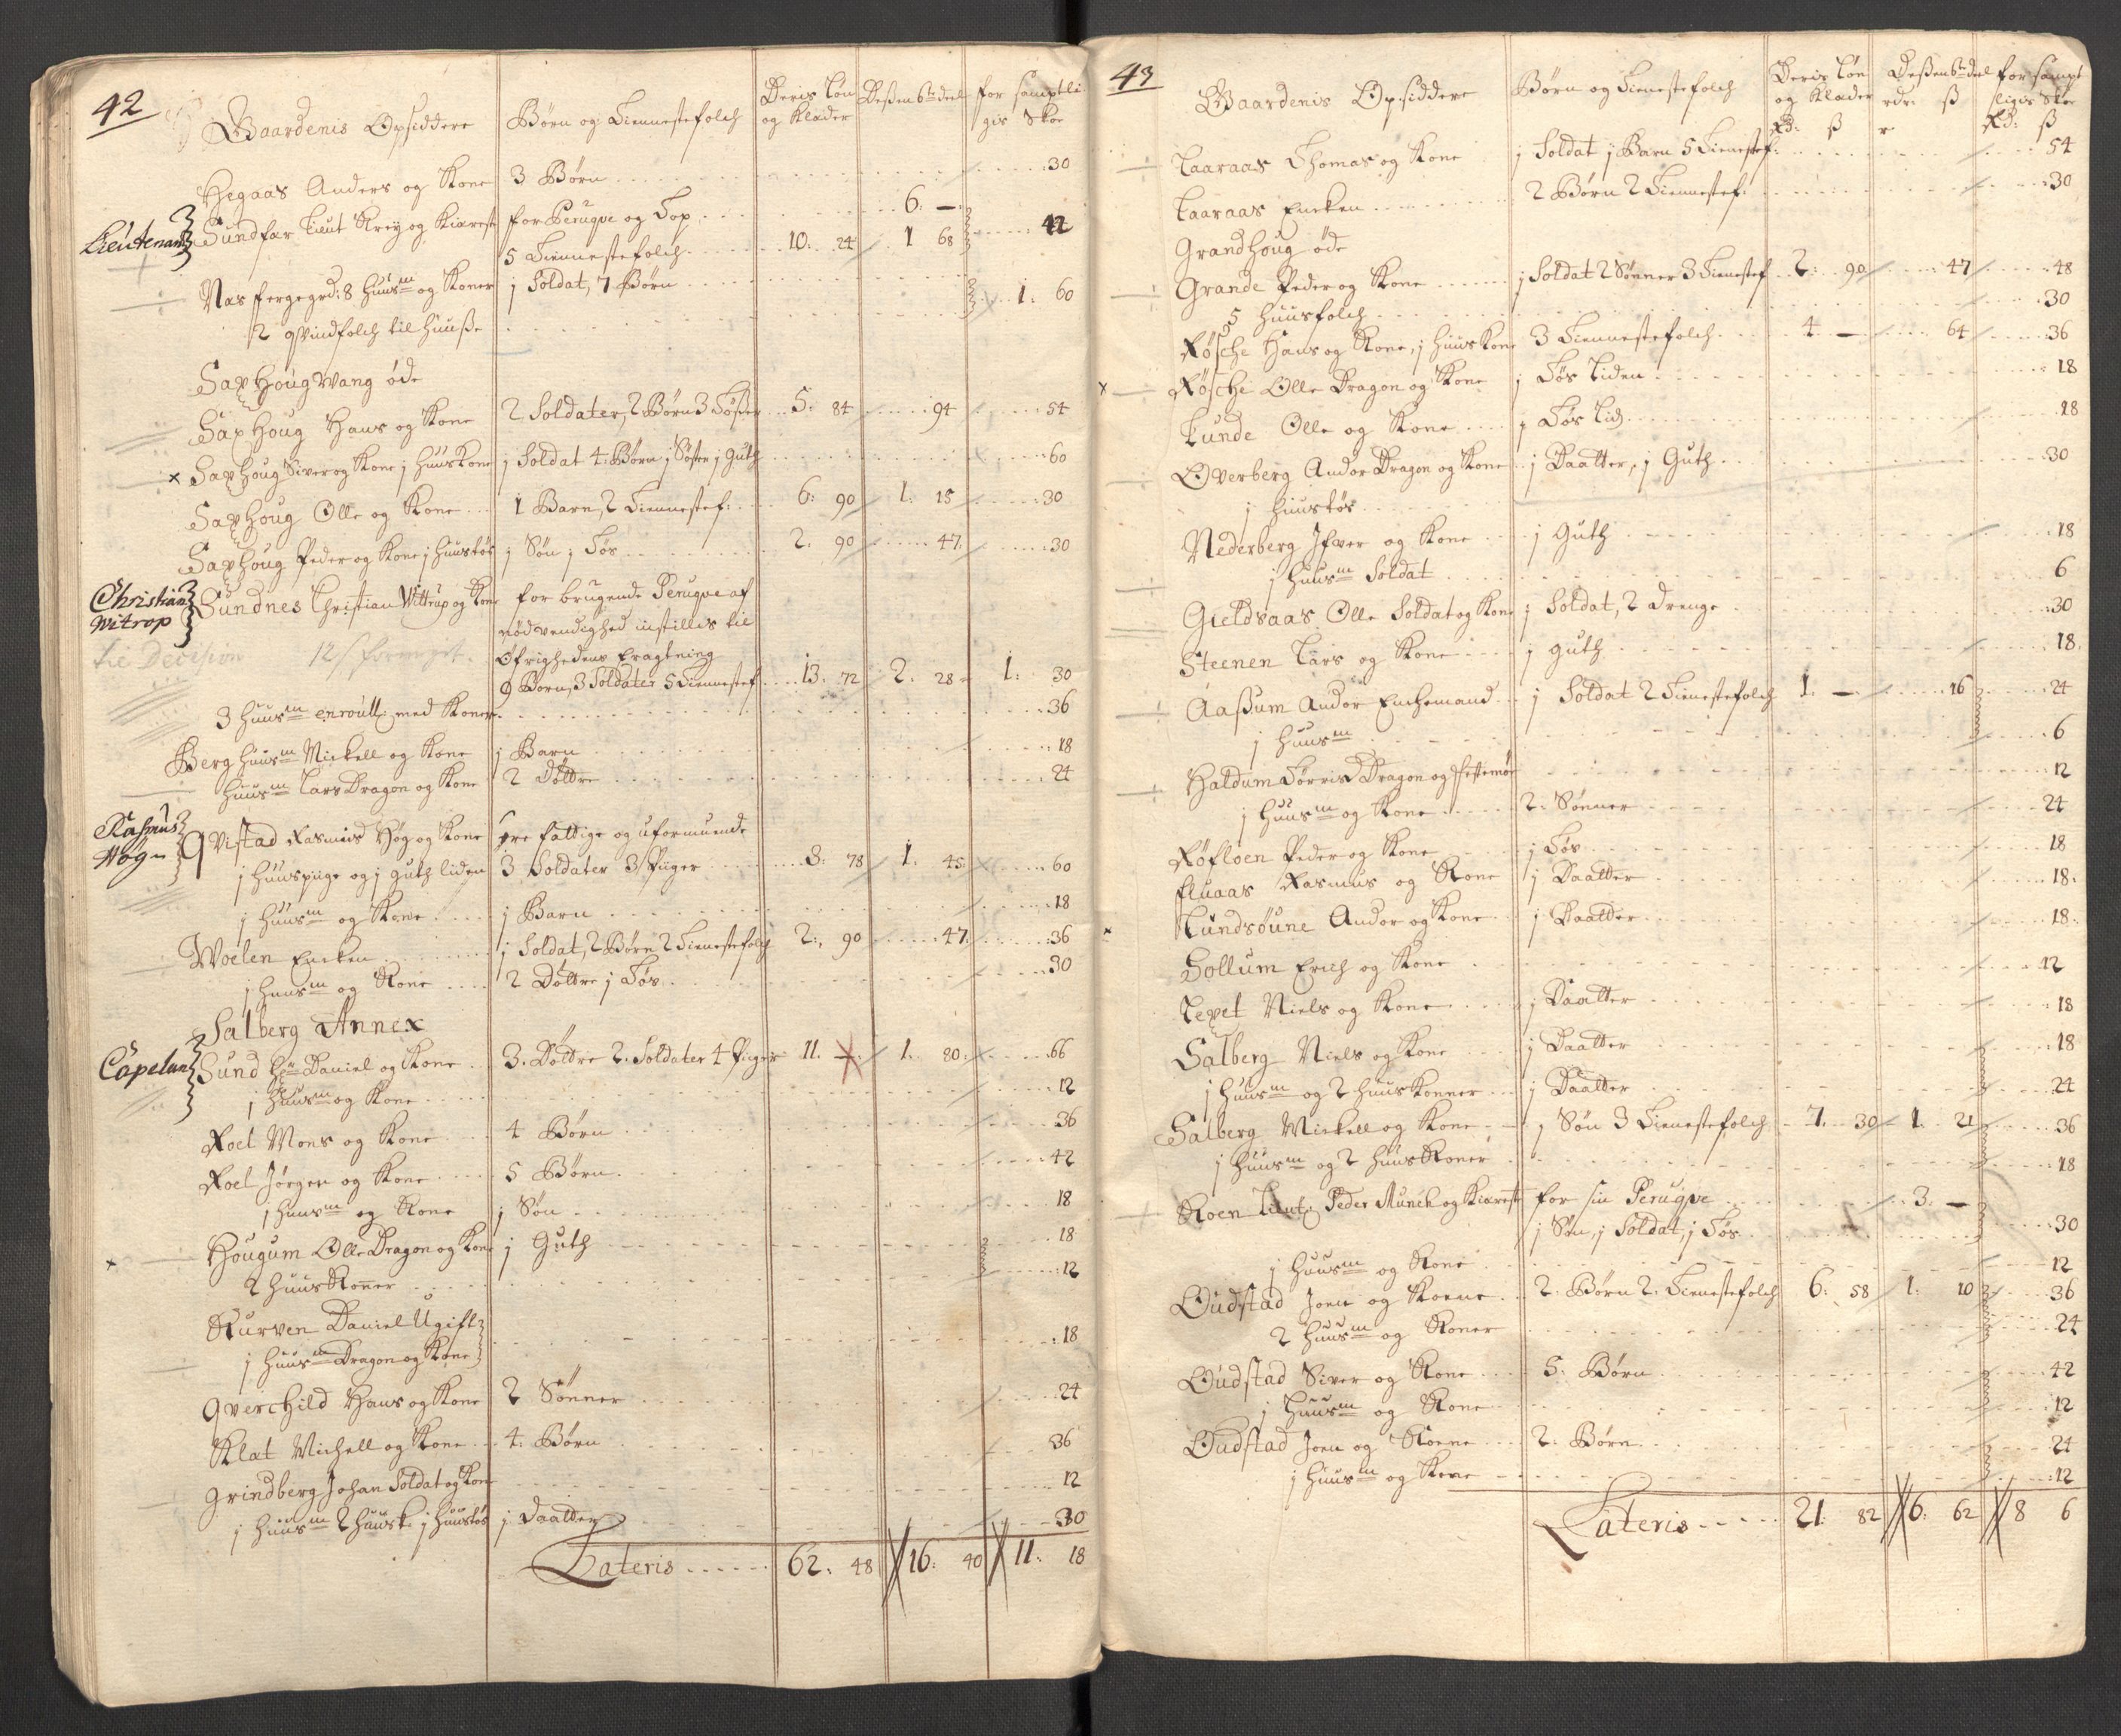 42
Gaardenis Opsiddere Børn og Tiennestefolch Deris Løn og Klæder Deßen 6te deel for samptligis Skoe
Hegaas Anders og Kone 3 Børn 30
Lieutenant Sundfær Lieut Krey og Kiærest for Peruqve og Top 6: —
5 Tiennestefolch 10: 24 1 68 42
Næs fergegrd: 8 huusm og Koner j Soldat, 7 Børn 1: 60
2 qvindfolch til huuße
Saxhougwang øde
Saxhoug Hans og Kone 2 Soldater, 2 Børn 3 Tøßer 5: 84 94 54
x Saxhoug Siver og Kone j huuskone j Soldat 4 Børn j Søster j Guth 60
Saxhoug Olle og Kone 1 Barn, 2 Tiennestef: 6: 90 1: 15 30
Saxhoug Peder og Kone j huustøs j Søn j Tøs 2: 90 47 30
Christian Witrop Sundnes Christian Wittrup og Kone for brugende Peruqve af
nødvendighed instillis til
til Decision
Øfrighedens Eragtning
9 Børn, 3 Soldater 5 Tiennestef 13: 72 2: 28 1: 30
3 huusm enroull: med Koner 36
Berg huusm Mickell og Kone j Barn 18
huusm Lars Dragon og Kone 2 døttre 24
Rasmus Høg Qvistad Rasmus Høg og Kone Ere fattige og uformuende
j huuspige og j guth liden 3 Soldater 3 Piiger 8: 78 1: 45 60
j huusm og Kone j Barn 18
Woelen Encken j Soldat, 2 Børn 2 Tienestefolch 2: 90 47 36
j huusm og Kone 2 Døttre j Tøs 30
Salberg Annex
Capelan Sund Hr Daniel og Kone 3. Døttre 2. Soldater 4 Piiger 11. 1. 80 66
j huusm og Kone 12
Roel Mons og Kone 4 Børn 36
Roel Jørgen og Kone 5 Børn 42
j huusm og Kone j Søn 18
x Hougum Olle Dragon og Kone j Guth 18
2 huuskoner 12
Kurven Daniel Ugift
j huusm Dragon og Kone 18
Qverchild Hans og Kone 2 Sønner 24
Klæt Michell og Kone 4: Børn 36
Grindberg Johan Soldat og Kone 12
j huusm 2 huusk: j huustøs j Daatter 30
Lateris 62: 48 16: 40 11: 18
43
Gaardenis Opsiddere Børn og Tienestefolch Deris Løn og Klæder Deßen 6te deel for samptligis Skoe
Rd: ß rdr: ß Rd: ß
Laaraas Thomas og Kone j Soldat j Barn 5 Tienestef: 54
Laaraas Encken 2 Børn 2 Tiennestef: 30
Grandhoug øde
Grande Peder og Kone j Soldat 2 Sønner 3 Tienestef 2: 90 47 48
5 huusfolch 30
Røsche Hans og Kone, j huuskone 3 Tiennestefolch 4 — 64 36
x Røsche Olle Dragon og Kone j Tøs liden 18
Lunde Olle og Kone j Tøs lid 18
Overberg Andor Dragon og Kone j Daatter, j Guth 30
j huustøs
Nederberg Ifver og Kone j Guth 18
j huusm Soldat 6
Gieldsaas Olle Soldat og Kone j Soldat, 2 drenge 30
Steenen Lars og Kone j guth 18
Aaßum Andor Enchemand j Soldat 2 Tienestefolch 1. — 16 24
j huusm 6
Haldum Torris Dragon og Festemøe 12
j huusm og Kone 2. Sønner 24
Røfloen Peder og Kone j Tøs 18
Fluaas Rasmus og Kone j Daatter 18
x Lundsøune Andor og Kone j Daatter 18
Sollum Erich og Kone 12
Lexet Niels og Kone j Daatter 18
Salberg Niels og Kone j Daatter 18
j huusm og 2 huuskonner j Daatter 24
Salberg Mickell og Kone j Søn 3 Tienestefolch 7. 30 1. 21 36
j huusm og 2 huuskoner 18
Roen Lieut: Peder Munch og Kiærest for sin Peruqve 3. —
j Søn, j Soldat, j Tøs 30
j huusm og Kone 12
Oudstad Joen og Koene 2. Børn 2. Tienestefolch 6: 58 1: 10 36
2 huusm og Koner 24
Oudstad Siver og Kone 5. Børn 42
j huusm og Kone 12
Oudstad Joen og Koene 2. Børn 24
j huusm og Kone 12
Lateris 21: 82 6: 62 8 6